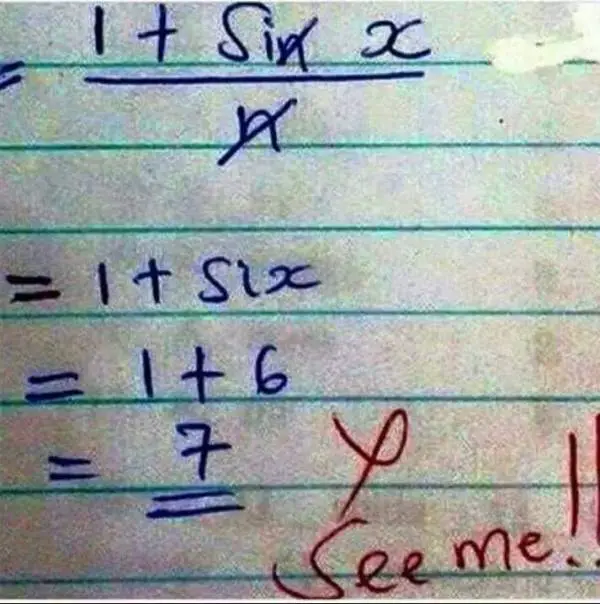 = 1 + Sin x
n
= 1 + Six
= 1 + 6
= 7
See me!!